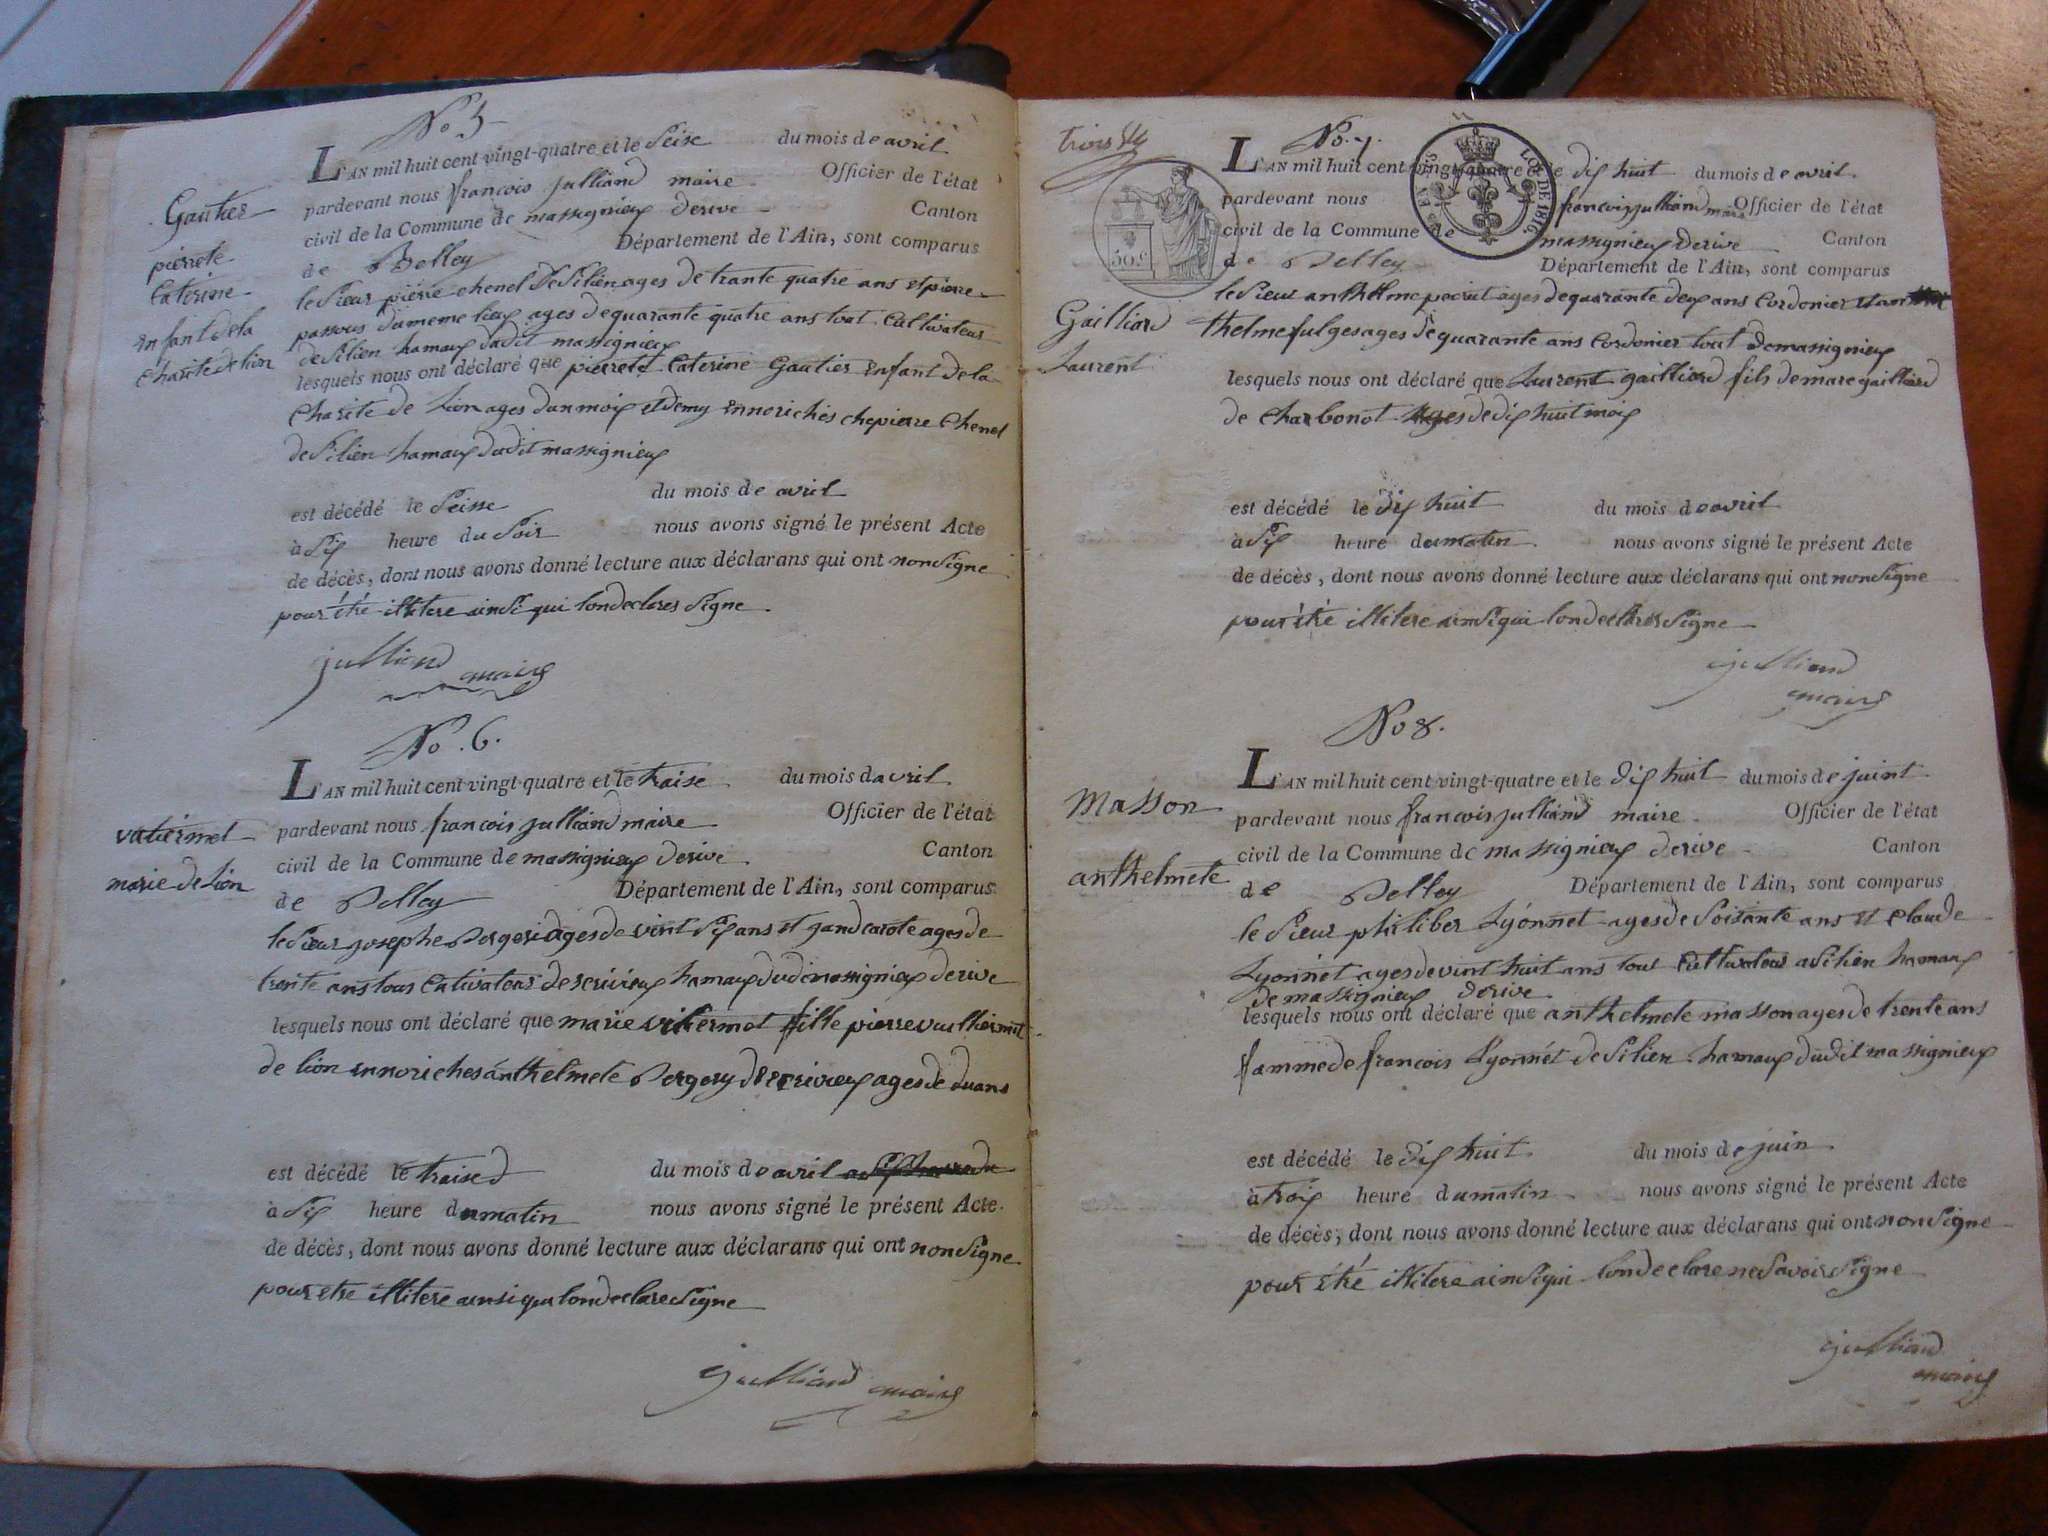 No 5
Gautier
pierrete
Caterine
enfant de la
Charite de lion
L'AN mil huit cent vingt-quatre et le Seise du mois de avril
pardevant nous francois julliand maire Officier de l'état
civil de la Commune de massignieux derive Canton
de Belley Département de l'Ain, sont comparus
le Sieur pierre chenel De Silien ages de trante quatre ans et pierre
passous du meme lieux ages de quarante quatre ans tout Cultivateur
de Silien hamaux dudit massignieux
lesquels nous ont déclaré que pierrete Caterine Gautier enfant de la
Charite de Lion ages dun mois et demy ennoriches che pierre Chenel
de Silien hamaux dudit massignieux
est décédé le Seisse du mois de avril
à Six heure du Soir nous avons signé le présent Acte
de décès, dont nous avons donné lecture aux déclarans qui ont non Signe
pour étré illitere ainsi qui londeclares Signe
julliand
maire
No. 6.
vatiermet
marie de Lion
L'AN mil huit cent vingt-quatre et le traise du mois davril
pardevant nous francois julliand maire Officier de l'état
civil de la Commune de massignieux derive Canton
de Belley Département de l'Ain, sont comparus
le Sieur josephe Bergeri ages de vint Six ans et jand carote ages de
trente ans tous Cultivateur de scrivieux hamaux dudi massignieux derive
lesquels nous ont déclaré que marie vitermet fille pierre vuilliermet
de lion ennoriches anthelmete Bergery de ecrivieux ages de du ans
est décédé le traise du mois de avril
à Six heure du matin nous avons signé le présent Acte.
de décès, dont nous avons donné lecture aux déclarans qui ont non Signe
pour etre illitere ainsi qui londeclare Signe
julliand maire
trois
No. 7.
50.c
LOI DE 1816
Gailliard
Laurent
L'AN mil huit cent vingt-quatre et le dix huit du mois de avril
pardevant nous francois julliand maire Officier de l'état
civil de la Commune de massignieux derive Canton
de Belley Département de l'Ain, sont comparus
le Sieur anthelme pecrut ages de quarante deux ans Cordonier et an
thelme fulges ages de quarante ans Cordonier tout de massignieux
lesquels nous ont déclaré que Laurent gailliard fils de marc gailliard
de Charbonot ages de dix huit mois
est décédé le dix huit du mois de avril
à Six heure du matin nous avons signé le présent Acte
de décès, dont nous avons donné lecture aux déclarans qui ont non Signe
pour étré illitere ainsi qui londeclares Signe
julliand
maire
No 8.
Masson
anthelmete
L'AN mil huit cent vingt-quatre et le dix huit du mois de juint
pardevant nous francois julliand maire Officier de l'état
civil de la Commune de massignieux derive Canton
de Belley Département de l'Ain, sont comparus
le Sieur philiber Lyonnet ages de Soisante ans et Claude
Lyonnet ages de vint huit ans tout Cultivateur a Silien hamaux
de massignieux derive
lesquels nous ont déclaré que anthelmete masson ages de trente ans
famme de francois Lyonnét de Silien hamaux dudit massignieux
est décédé le dix huit du mois de juin
à troix heure du matin nous avons signé le présent Acte
de décès, dont nous avons donné lecture aux déclarans qui ont non Signe
pour étré illitere ainsi qui londeclare ne Savoir Signe
julliand
maire